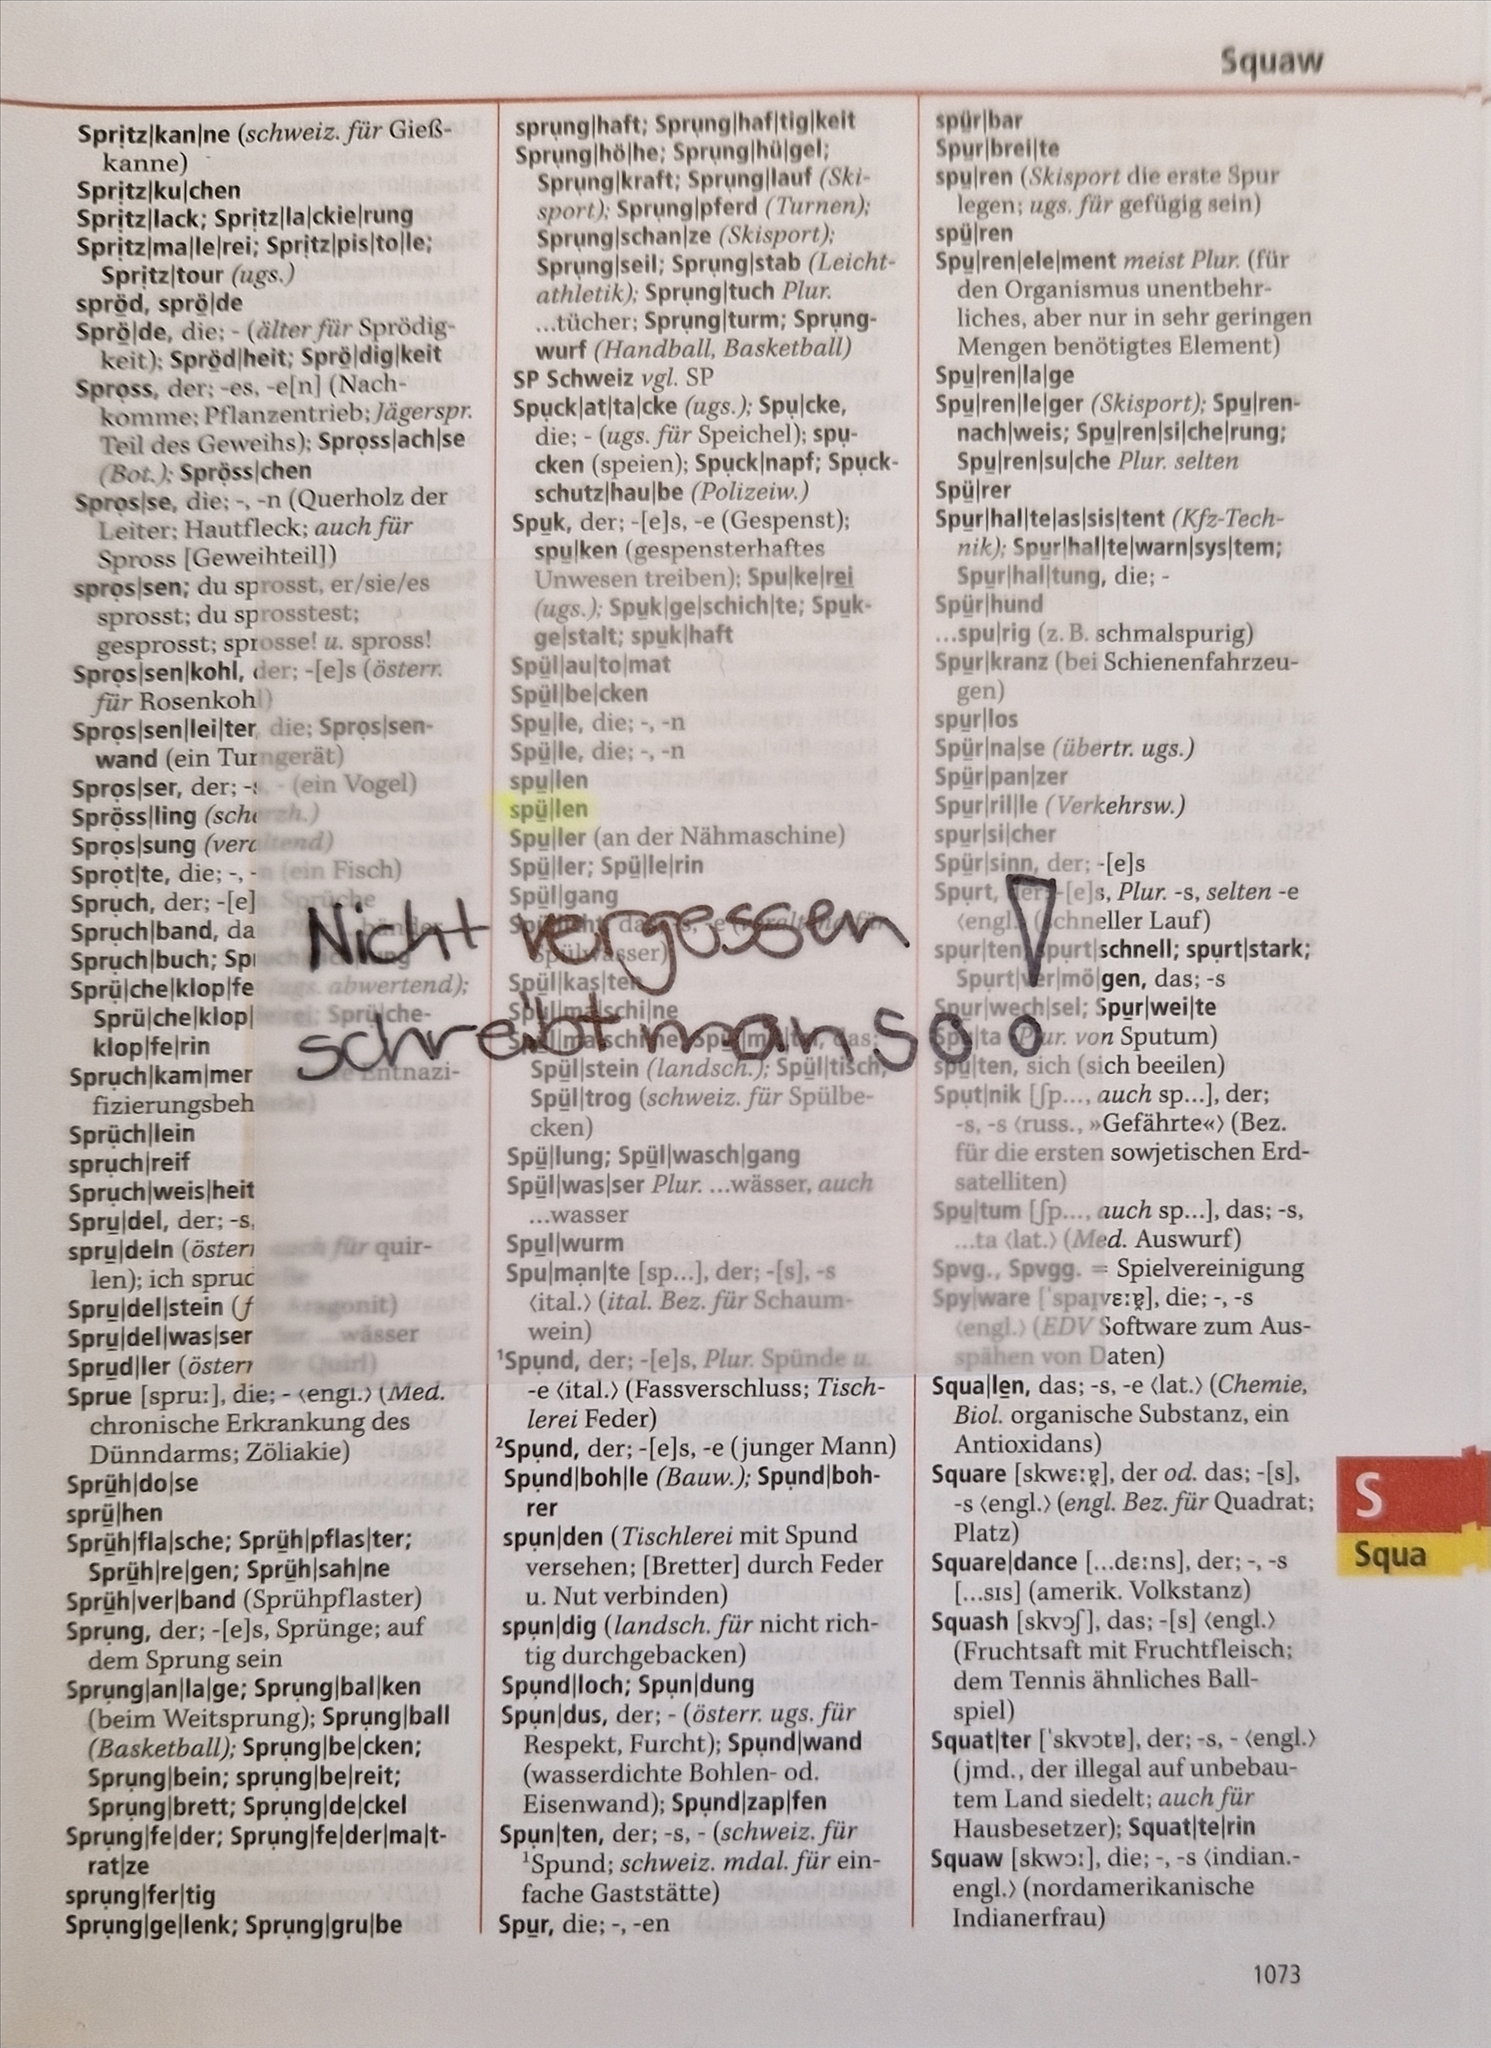 Squaw
Spritz|kan|ne (schweiz. für Gieß-
kanne)
Spritz|ku|chen
Spritz|lack; Spritz|la|ckie|rung
Spritz|ma|le|rei; Spritz|pis|to|le;
Spritz|tour (ugs.)
spröd, sprö|de
Sprö|de, die; - (älter für Sprödig-
keit); Spröd|heit; Sprö|dig|keit
Spross, der; -es, -e[n] (Nach-
komme; Pflanzentrieb; Jägerspr.
Teil des Geweihs); Spross|ach|se
(Bot.); Spröss|chen
Spros|se, die; -, -n (Querholz der
Leiter; Hautfleck; auch für
Spross [Geweihteil])
spros|sen; du sprosst, er/sie/es
sprosst; du sprosstest;
gesprosst; sprosse! u. spross!
Spros|sen|kohl, der; -[e]s (österr.
für Rosenkohl)
Spros|sen|lei|ter, die; Spros|sen-
wand (ein Turngerät)
Spros|ser, der; -s, - (ein Vogel)
Spröss|ling (scherzh.)
Spros|sung (veraltend)
Sprot|te, die; -, -n (ein Fisch)
Spruch, der; -[e]s, Sprüche
Spruch|band, das Plur. ...bänder
Spruch|buch; Spruch|dich|tung
Sprü|che|klop|fer (ugs. abwertend);
Sprü|che|klop|ferei; Sprü|che-
klop|fe|rin
Spruch|kam|mer Entnazi-
fizierungsbehörde)
Sprüch|lein
spruch|reif
Spruch|weis|heit
Spru|del, der; -s,
spru|deln (österr. auch für quir-
len); ich sprudele
Spru|del|stein (für Aragonit)
Spru|del|was|ser Plur. ...wässer
Sprud|ler (österr. für Quirl)
Sprue [spru:], die; - ⟨engl.⟩ (Med.
chronische Erkrankung des
Dünndarms; Zöliakie)
Sprüh|do|se
sprü|hen
Sprüh|fla|sche; Sprüh|pflas|ter;
Sprüh|re|gen; Sprüh|sah|ne
Sprüh|ver|band (Sprühpflaster)
Sprung, der; -[e]s, Sprünge; auf
dem Sprung sein
Sprung|an|la|ge; Sprung|bal|ken
(beim Weitsprung); Sprung|ball
(Basketball); Sprung|be|cken;
Sprung|bein; sprung|be|reit;
Sprung|brett; Sprung|de|ckel
Sprung|fe|der; Sprung|fe|der|ma|t-
rat|ze
sprung|fer|tig
Sprung|ge|lenk; Sprung|gru|be
sprung|haft; Sprung|haf|tig|keit
Sprung|hö|he; Sprung|hü|gel;
Sprung|kraft; Sprung|lauf (Ski-
sport); Sprung|pferd (Turnen);
Sprung|schan|ze (Skisport);
Sprung|seil; Sprung|stab (Leicht-
athletik); Sprung|tuch Plur.
...tücher; Sprung|turm; Sprung-
wurf (Handball, Basketball)
SP Schweiz vgl. SP
Spuck|at|ta|cke (ugs.); Spu|cke,
die; - (ugs. für Speichel); spu-
cken (speien); Spuck|napf; Spuck-
schutz|hau|be (Polizeiw.)
Spuk, der; -[e]s, -e (Gespenst);
spu|ken (gespensterhaftes
Unwesen treiben); Spu|ke|rei
(ugs.); Spuk|ge|schich|te; Spuk-
ge|stalt; spuk|haft
Spül|au|to|mat
Spül|be|cken
Spu|le, die; -, -n
Spü|le, die; -, -n
spu|len
spü|len
Spu|ler (an der Nähmaschine)
Spü|ler; Spü|le|rin
Spül|gang
Spü|licht, das; -s, -e (veraltend für
Spülwasser)
Spül|kas|ten
Spül|ma|schi|ne
Spül|ma|schi|ne; Spül|mit|tel, das;
Spül|stein (landsch.); Spül|tisch;
Spül|trog (schweiz. für Spülbe-
cken)
Spü|lung; Spül|wasch|gang
Spül|was|ser Plur. ...wässer, auch
...wasser
Spul|wurm
Spu|man|te [sp...], der; -[s], -s
⟨ital.⟩ (ital. Bez. für Schaum-
wein)
¹Spund, der; -[e]s, Plur. Spünde u.
-e ⟨ital.⟩ (Fassverschluss; Tisch-
lerei Feder)
²Spund, der; -[e]s, -e (junger Mann)
Spund|boh|le (Bauw.); Spund|boh-
rer
spun|den (Tischlerei mit Spund
versehen; [Bretter] durch Feder
u. Nut verbinden)
spun|dig (landsch. für nicht rich-
tig durchgebacken)
Spund|loch; Spun|dung
Spun|dus, der; - (österr. ugs. für
Respekt, Furcht); Spund|wand
(wasserdichte Bohlen- od.
Eisenwand); Spund|zap|fen
Spun|ten, der; -s, - (schweiz. für
¹Spund; schweiz. mdal. für ein-
fache Gaststätte)
Spur, die; -, -en
spür|bar
Spur|brei|te
spu|ren (Skisport die erste Spur
legen; ugs. für gefügig sein)
spü|ren
Spu|ren|ele|ment meist Plur. (für
den Organismus unentbehr-
liches, aber nur in sehr geringen
Mengen benötigtes Element)
Spu|ren|la|ge
Spu|ren|le|ger (Skisport); Spu|ren-
nach|weis; Spu|ren|si|che|rung;
Spu|ren|su|che Plur. selten
Spü|rer
Spur|hal|te|as|sis|tent (Kfz-Tech-
nik); Spur|hal|te|warn|sys|tem;
Spur|hal|tung, die; -
Spür|hund
...spu|rig (z. B. schmalspurig)
Spur|kranz (bei Schienenfahrzeu-
gen)
spur|los
Spür|na|se (übertr. ugs.)
Spür|pan|zer
Spur|ril|le (Verkehrsw.)
spur|si|cher
Spür|sinn, der; -[e]s
Spurt, der; -[e]s, Plur. -s, selten -e
⟨engl.⟩ (schneller Lauf)
spur|ten; spurt|schnell; spurt|stark;
Spurt|ver|mö|gen, das; -s
Spur|wech|sel; Spur|wei|te
Spu|ta (Plur. von Sputum)
spu|ten, sich (sich beeilen)
Sput|nik [ʃp..., auch sp...], der;
-s, -s ⟨russ., »Gefährte«⟩ (Bez.
für die ersten sowjetischen Erd-
satelliten)
Spu|tum [ʃp..., auch sp...], das; -s,
...ta ⟨lat.⟩ (Med. Auswurf)
Spvg., Spvgg. = Spielvereinigung
Spy|ware [ˈspaɪvɛːɐ̯], die; -, -s
⟨engl.⟩ (EDV Software zum Aus-
spähen von Daten)
Squa|len, das; -s, -e ⟨lat.⟩ (Chemie,
Biol. organische Substanz, ein
Antioxidans)
Square [skwɛːɐ̯], der od. das; -[s],
-s ⟨engl.⟩ (engl. Bez. für Quadrat;
Platz)
Square|dance [...dɛːns], der; -, -s
[...sɪs] (amerik. Volkstanz)
Squash [skvɔʃ], das; -[s] ⟨engl.⟩
(Fruchtsaft mit Fruchtfleisch;
dem Tennis ähnliches Ball-
spiel)
Squat|ter [ˈskvɔtɐ], der; -s, - ⟨engl.⟩
(jmd., der illegal auf unbebau-
tem Land siedelt; auch für
Hausbesetzer); Squat|te|rin
Squaw [skwɔː], die; -, -s ⟨indian.-
engl.⟩ (nordamerikanische
Indianerfrau)
Nicht vergessen !
schreibt man so
S
Squa
1073